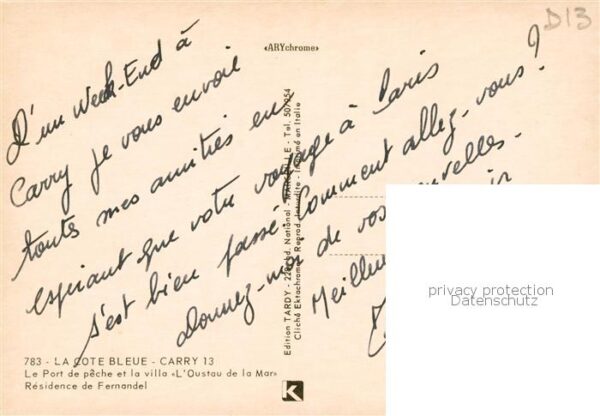 D13
«ARYchrome»
D'un Week-End à
Carry je vous envoie
toutes mes amitiés en
espérant que votre voyage à Paris
s'est bien passé. Comment allez-vous?
Donnez-moi de vos nouvelles.
Meilleu
Edition TARDY - National - MARSEILLE - Tél. 507954
Cliché Ektachrome Reprod. Interdite - Imprimé en Italie
privacy protection
Datenschutz
783 - LA COTE BLEUE - CARRY 13
Le Port de pêche et la villa «L'Oustau de la Mar»
Résidence de Fernandel
K